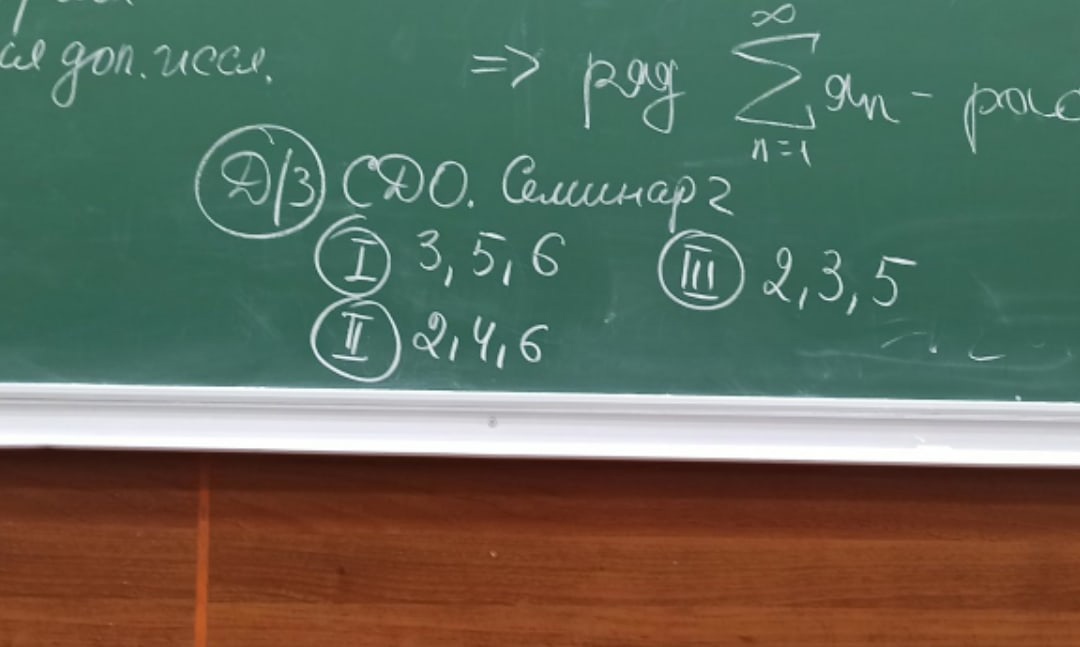 доп. иссл.
=> ряд ∑ aₙ -
∞
n=1
Д/З СДО. Семинар 2
I 3, 5, 6
III 2, 3, 5
II 2, 4, 6